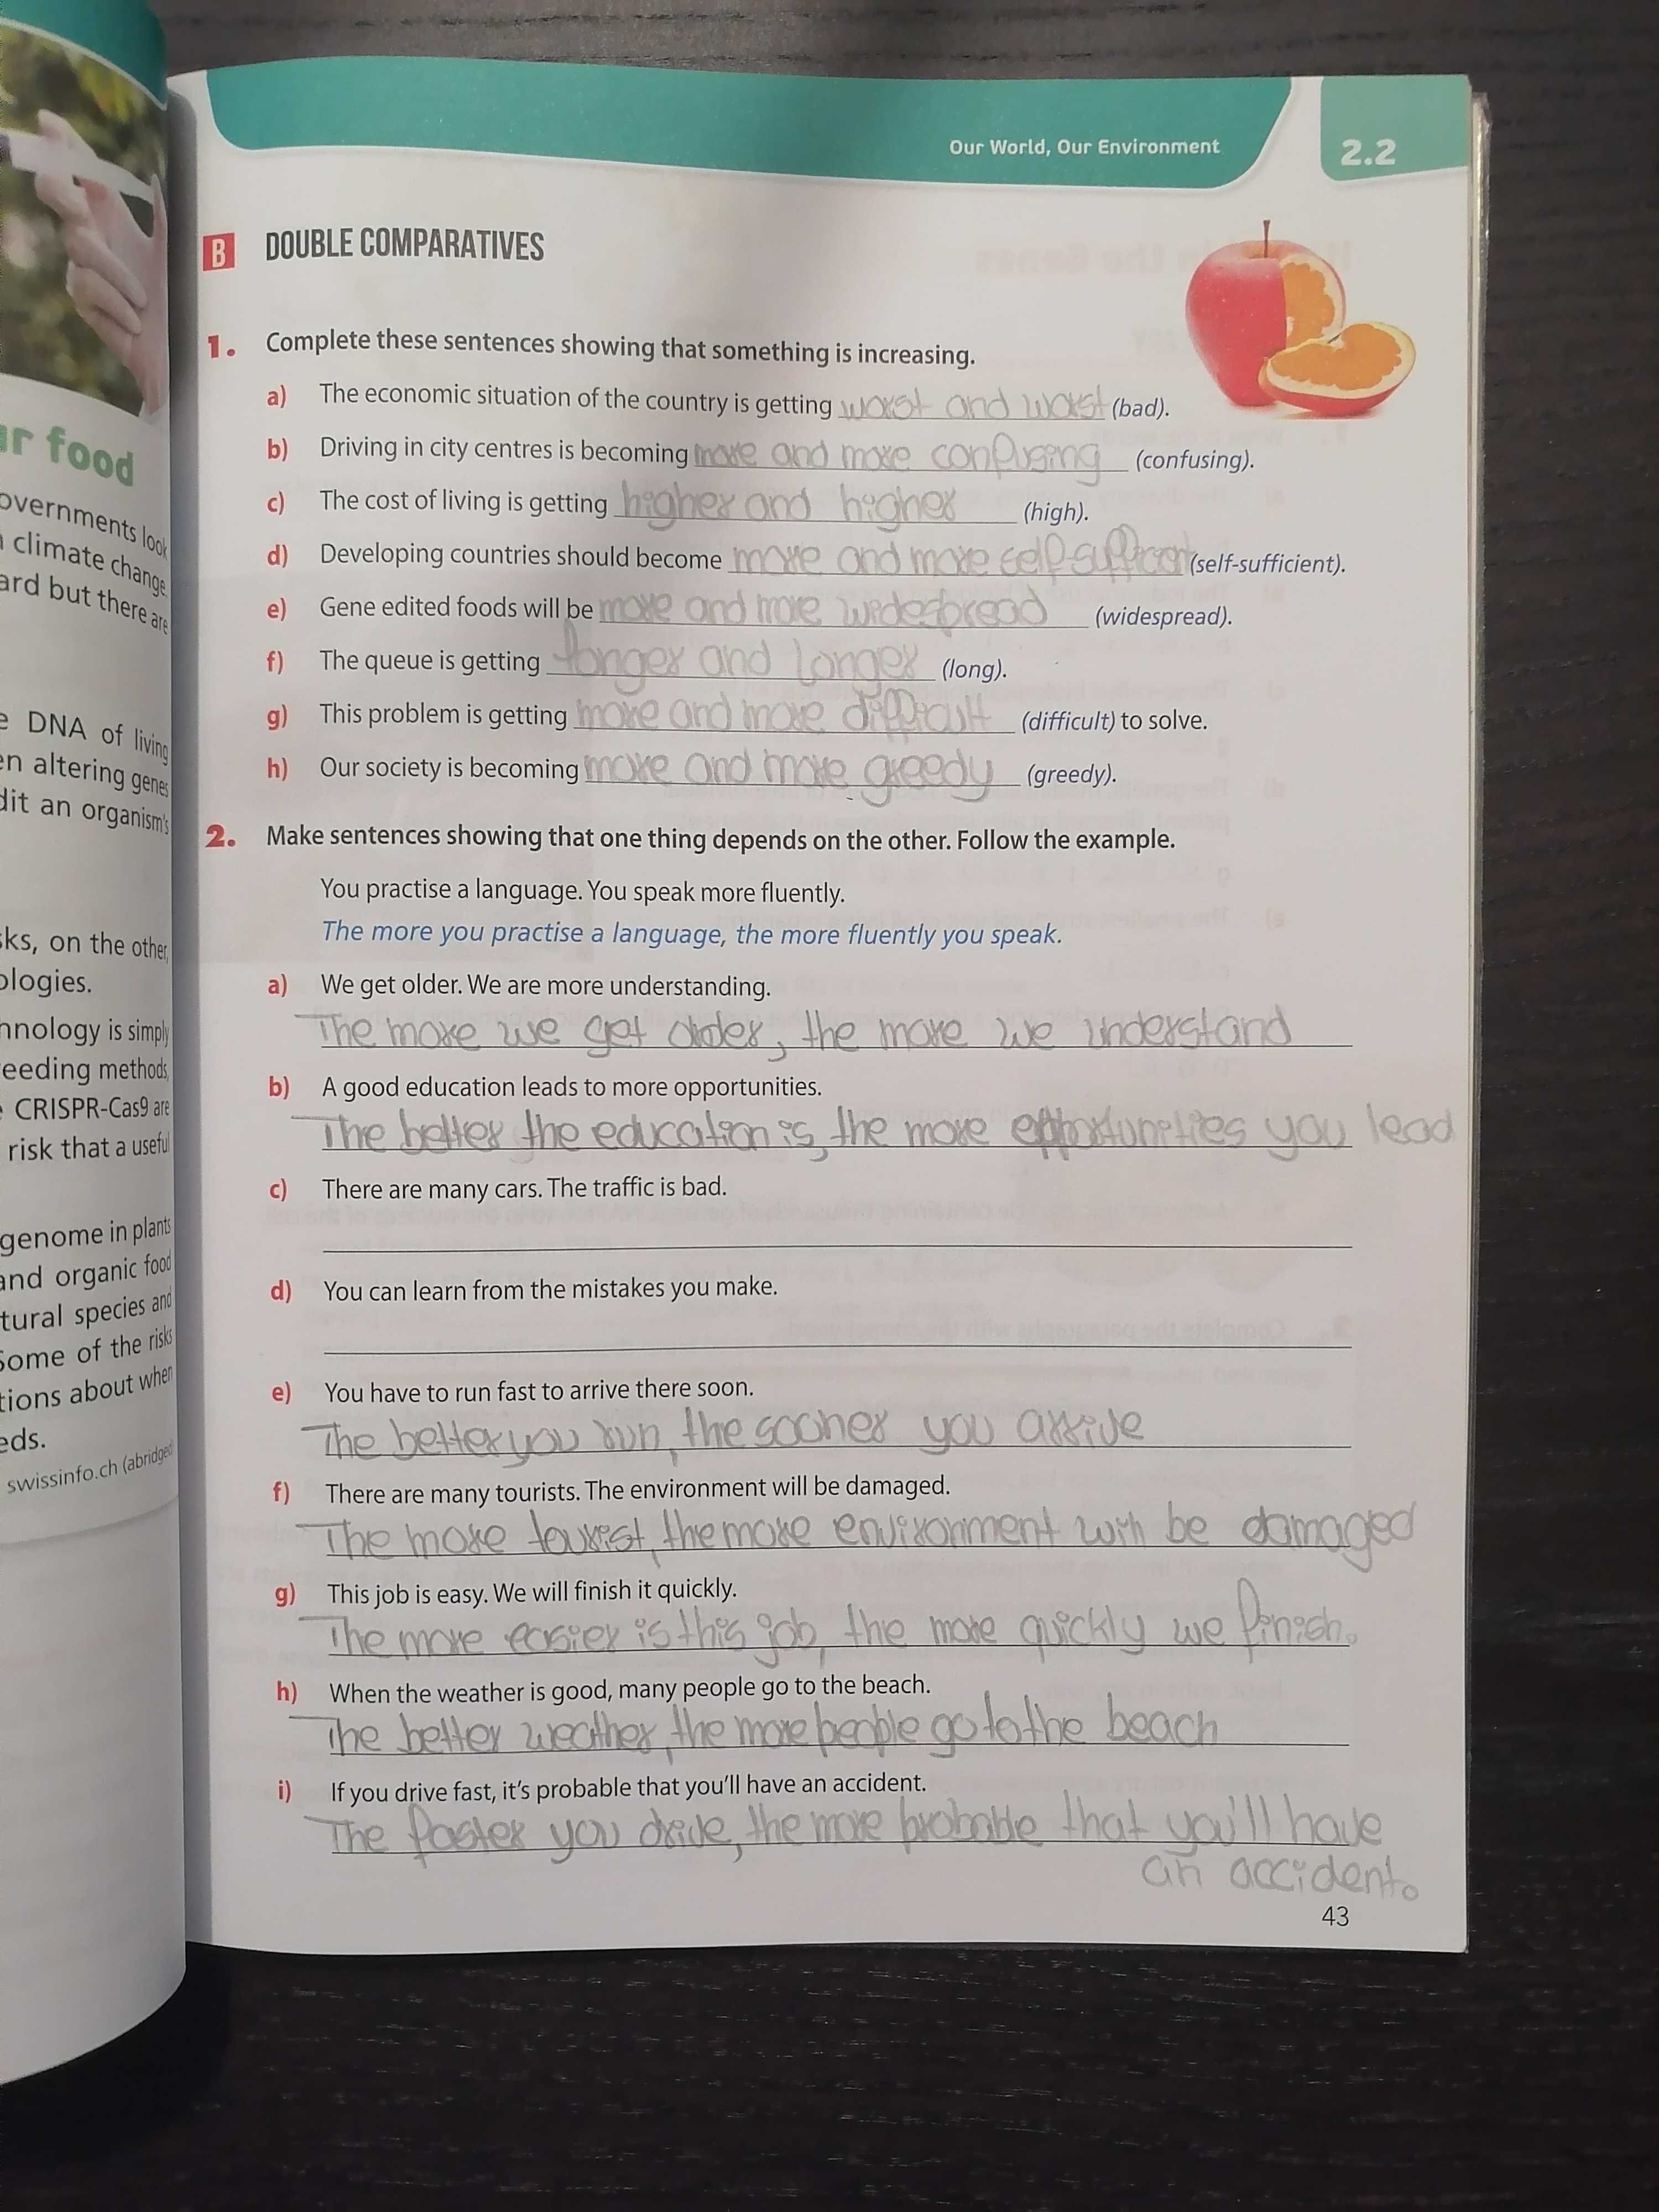 Our World, Our Environment
2.2
B DOUBLE COMPARATIVES
1. Complete these sentences showing that something is increasing.
a) The economic situation of the country is getting worst and worst (bad).
b) Driving in city centres is becoming more and more confusing (confusing).
c) The cost of living is getting higher and higher (high).
d) Developing countries should become more and more self-sufficient (self-sufficient).
e) Gene edited foods will be more and more widespread (widespread).
f) The queue is getting longer and longer (long).
g) This problem is getting more and more difficult (difficult) to solve.
h) Our society is becoming more and more greedy (greedy).
2. Make sentences showing that one thing depends on the other. Follow the example.
You practise a language. You speak more fluently.
The more you practise a language, the more fluently you speak.
a) We get older. We are more understanding.
The more we get older, the more we understand
b) A good education leads to more opportunities.
The better the education is, the more opportunities you lead
c) There are many cars. The traffic is bad.
d) You can learn from the mistakes you make.
e) You have to run fast to arrive there soon.
The better you run, the sooner you arrive
f) There are many tourists. The environment will be damaged.
The more tourist, the more environment will be damaged
g) This job is easy. We will finish it quickly.
The more easier is this job, the more quickly we finish.
h) When the weather is good, many people go to the beach.
The better weather, the more people go to the beach
i) If you drive fast, it's probable that you'll have an accident.
The faster you drive, the more probable that you'll have
an accident.
43
ur food
overnments look
climate change
ard but there are
e DNA of living
en altering genes
dit an organism's
sks, on the other
ologies.
hnology is simply
reeding methods,
CRISPR-Cas9 are
risk that a useful
genome in plants
and organic food
tural species and
Some of the risks
tions about when
eds.
swissinfo.ch (abridged